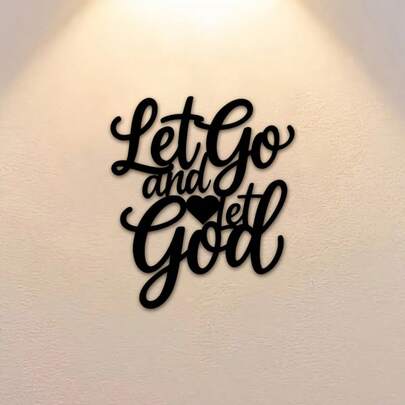 Let Go
and
let
God